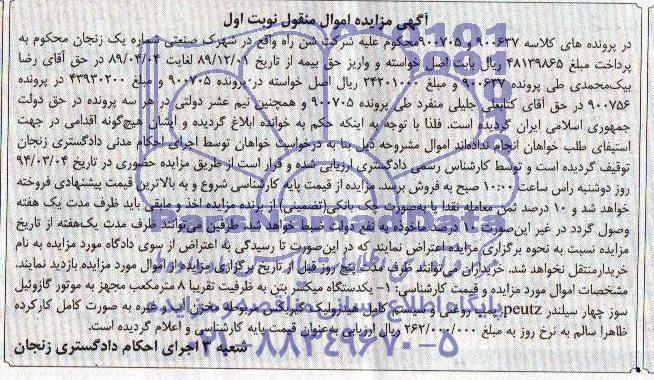 آگهی مزایده اموال منقول نوبت اول
در پرونده های کلاسه ۹۰۰۶۳۷ و ۹۰۰۷۰۵محکوم علیه شرکت شن راه واقع در شهرک صنعتی شماره یک زنجان محکوم به
پرداخت مبلغ ۴۸۱۳۹۸۶۵ ریال بابت اصل خواسته و واریز حق بیمه از تاریخ ۸۹/۱۲/۰۱ لغایت ۸۹/۰۴/۰۴ در حق آقای رضا
بیک‌محمدی طی پرونده ۹۰۰۶۳۷ و مبلغ ۲۴۲۰۱۰۰۰ ریال اصل خواسته در پرونده ۹۰۰۷۰۵ و مبلغ ۴۳۹۳۰۲۰۰ در پرونده
۹۰۰۷۵۶ در حق آقای کتابعلی جلیلی منفرد طی پرونده ۹۰۰۷۰۵ و همچنین نیم عشر دولتی در هر سه پرونده در حق دولت
جمهوری اسلامی ایران گردیده است. فلذا با توجه به اینکه حکم به خوانده ابلاغ گردیده و ایشان هیچ‌گونه اقدامی در جهت
استیفای طلب خواهان انجام نداده‌اند اموال مشروحه ذیل بنا به درخواست خواهان توسط اجرای احکام مدنی دادگستری زنجان
توقیف گردیده است و توسط کارشناس رسمی دادگستری ارزیابی شده و قرار است از طریق مزایده حضوری در تاریخ ۹۴/۰۳/۰۴
روز دوشنبه راس ساعت ۱۰:۰۰ صبح به فروش برسد. مزایده از قیمت پایه کارشناسی شروع و به بالاترین قیمت پیشنهادی فروخته
خواهد شد و ۱۰ درصد ثمن معامله نقدا یا به‌صورت چک بانکی(تضمینی) از برنده مزایده اخذ و مابقی باید ظرف مدت یک هفته
وصول گردد در غیر این‌صورت ۱۰ درصد ماخوذه به نفع دولت ضبط خواهد شد. طرفین می‌توانند ظرف مدت یک‌هفته از تاریخ
مزایده نسبت به نحوه برگزاری مزایده اعتراض نمایند که در این‌صورت تا رسیدگی به اعتراض از سوی دادگاه مورد مزایده به نام
خریدارمنتقل نخواهد شد. خریداران می‌توانند ظرف مدت پنج روز قبل از تاریخ برگزاری مزایده از اموال مورد مزایده بازدید نمایند.
مشخصات اموال مورد مزایده و قیمت کارشناسی: ۱- یکدستگاه میکسر بتن به ظرفیت تقریبا ۸ مترمکعب مجهز به موتور گازوئیل
سوز چهار سیلندر peutz پمپ روغنی و سیستم کامل هیدرولیک گیربکس مربوطه مخزن آب و غیره به صورت کامل کارکرده
ظاهرا سالم به نرخ روز به مبلغ ۲۶۲/۰۰۰/۰۰۰ ریال ارزیابی به‌عنوان قیمت پایه کارشناسی و اعلام گردیده است.
شعبه ۳ اجرای احکام دادگستری زنجان
ParsNamadData
پایگاه اطلاع رسانی مناقصه و مزایده
۰۲۱-۸۸۳۴۹۶۷۰-۵